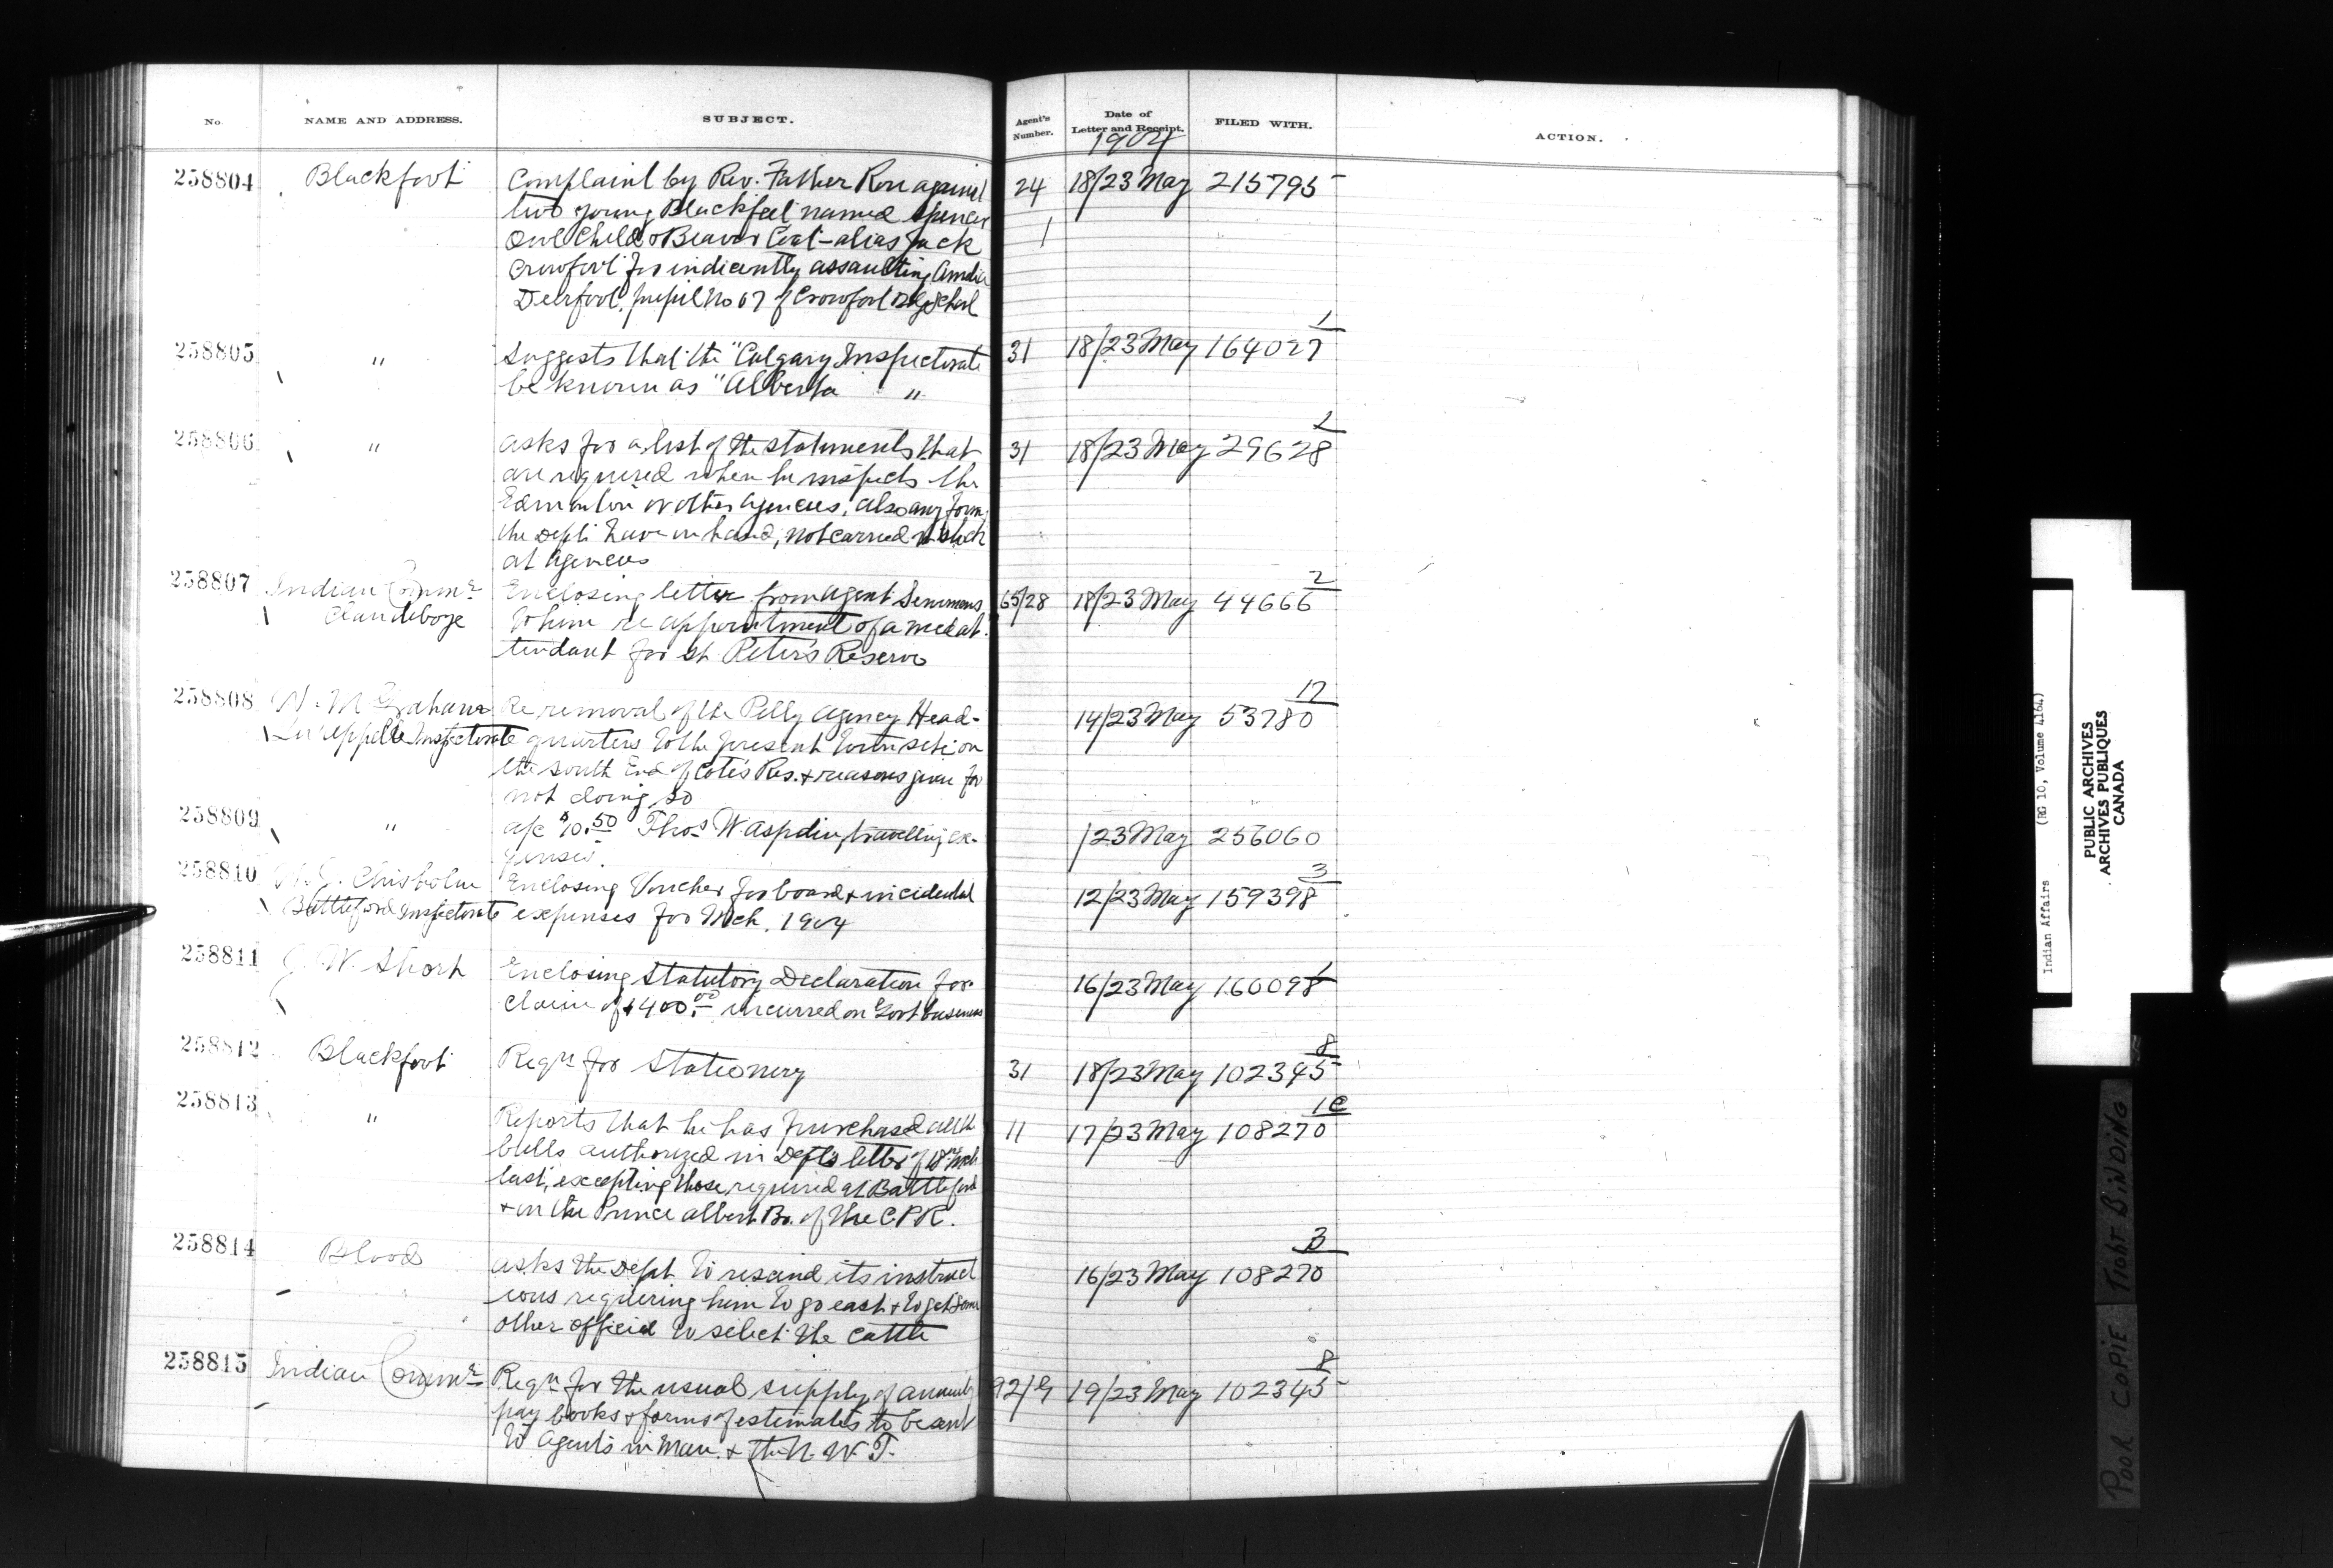 No. NAME AND ADDRESS. SUBJECT. Agent's Number. Date of Letter and Receipt. FILED WITH. ACTION.
1904
258804 Blackfoot Complaint by Rev. Father Riou against 24 18/23 May 215795
two young Blackfeet named Spencer 1
Owl Child & Beaver Coat - alias Jack
Crowfoot for indicently assaulting Amelia
Deerfoot, pupil No 67 of Crowfoot Bdg School
1
258805 " Suggests that the "Calgary Inspectorate 31 18/23 May 164027
be known as "Alberta "
2
258806 " asks for a list of the statements that 31 18/23 May 29628
are required when he inspects the
Edmonton or other agencies, also any forms
the Dept. have on hand, not carried in stock
at agencies
2
258807 Indian Commr Enclosing letter from Agent Semmens 65/28 18/23 May 44666
Clandeboye to him re appointment of a med at-
tendant for St. Peter's Reserve
17
258808 W. M. Graham Re removal of the Pelly Agency Head- 14/23 May 53780
Qu'Appelle Inspectorate quarters to the present townsite on
the south End of Cote's Res. & reasons given for
not doing so
258809 " a/c $10.50 Thos W. Aspdin, travelling ex- /23 May 256060
penses.
3
258810 Chisholm Enclosing Voucher for board & incidental 12/23 May 159398
Battleford Inspectorate expenses for Mch. 1904
1
258811 W. Short Enclosing Statutory Declaration for 16/23 May 160098
claim of $400.00 incurred on Govt business
8
258812 Blackfoot Reqn for Stationery 31 18/23 May 102345
10
258813 " Reports that he has purchased all the 11 17/23 May 108270
bulls authorized in Dept's letter of 18th Mch
last, excepting those required at Battleford
& on the Prince Albert Br. of the C.P.R.
3
258814 Blood asks the Dept. to rescind its instruct 16/23 May 108270
ions requiring him to go east & to get some
other official to select the cattle
8
258815 Indian Commr Reqn for the usual supply of annuity 92/19 19/23 May 102345
pay books & forms of estimates to be sent
to Agents in Man. & the N. W. T.
Indian Affairs (RG 10, Volume 4164)
PUBLIC ARCHIVES
ARCHIVES PUBLIQUES
CANADA
POOR COPIE TIGHT BINDING